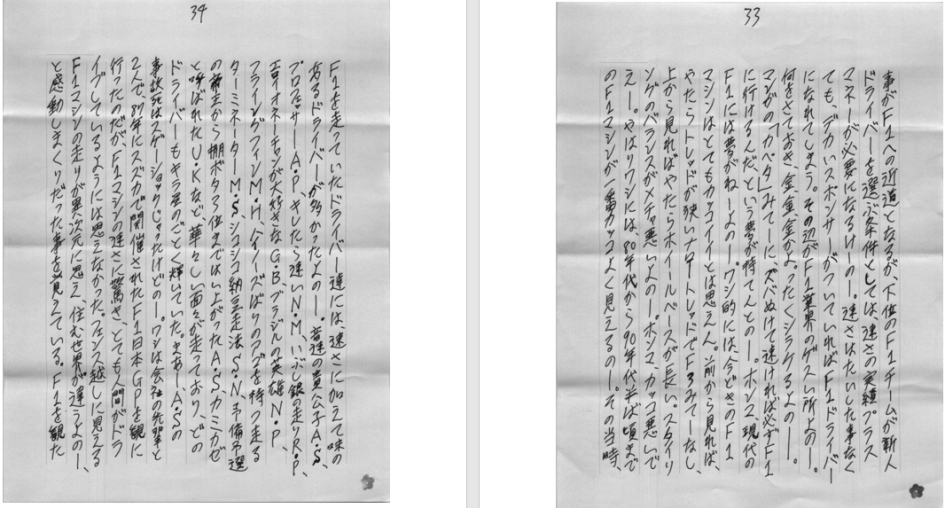 33
事がF1への近道となるが、下位のF1チームが新人
ドライバーを選ぶ条件としては、速さの実績プラス
マネーが必要になるけーの。速さはたいした事なく
ても、デカいスポンサーがついていればF1ドライバー
になれてしまう。その辺がF1業界のゲスい所よのー。
何をさておき、金、金、金かよ。ったくシラケるよのー。
マンガの「カペタ」みてーに、ズバぬけて速ければ必ずF1
に行けるんだ、という夢が持てんとのー。ホンマ現代の
F1には夢がねーよのー。ワシ的には、今どきのF1
マシンはとてもカッコイイとは思えん。前から見れば、
やたらトレッドが狭いナロートレッドでF3みてーなし、
上から見ればやたらホイールベースが長い。スタイリ
ングのバランスがメチャ悪いよのー。ホンマ、カッコ悪いで
えー。やはりワシには、80年代から90年代半ば頃まで
のF1マシンが一番カッコよく見えるのー。その当時、
34
F1を走っていたドライバー達には、速さに加えて味の
あるドライバーが多かったよのー。音速の貴公子A・S、
プロフェッサーA・P、キレたら速いN・M、いぶし銀の走りR・P、
エロイオネーチャンが大好きなG・B、ブラジルの英雄N・P、
フライングフィンM・H、ハイノーズばりのアゴを持つ走る
ターミネーターM・S、シコシコ納豆走法S・N、予備予選
の帝王から棚ボタ2位まではい上がったA・S、カミカゼ
と呼ばれたU・Kなど、華々しい面々が走っており、どの
ドライバーもキラ星のごとく輝いていた。まあー、A・Sの
事故死はスゲーショックじゃったけどのー。ワシは会社の先輩と
2人で、87年にスズカで開催されたF1日本GPを観に
行ったのだが、F1マシンの速さに驚き、とても人間がドラ
イブしているようには思えなかった。フェンス越しに思える
F1マシンの走りが異次元に思え、住む世界が違うよのー、
と感動しまくりだった事を覚えている。F1を観た